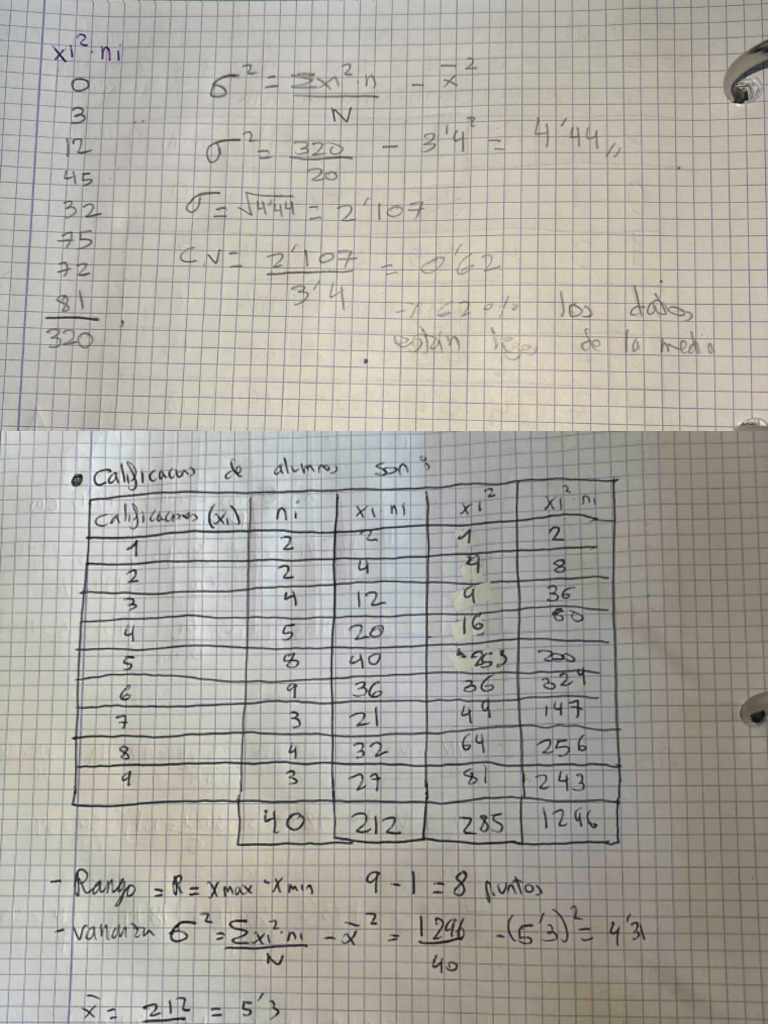 xi² · ni
0
3
12
45
32
75
72
81
320
σ² = Σxi²·n / N - x̄²
σ² = 320 / 20 - 3'4² = 4'44,,
σ = √4'44 = 2'107
CV = 2'107 / 3'4 = 0'62
62% los datos
están lejos de la media
• Calificacus de alumnos son:
Calificacines (xi) ni xi ni xi² xi² ni
1 2 2 1 2
2 2 4 4 8
3 4 12 9 36
4 5 20 16 80
5 8 40 25 200
6 9 36 36 324
7 3 21 49 147
8 4 32 64 256
9 3 27 81 243
40 212 285 1296
- Rango = R = xmax - xmin 9 - 1 = 8 puntos
- varianza σ² = Σxi²·ni / N - x̄² = 1296 / 40 - (5'3)² = 4'31
x̄ = 212 = 5'3